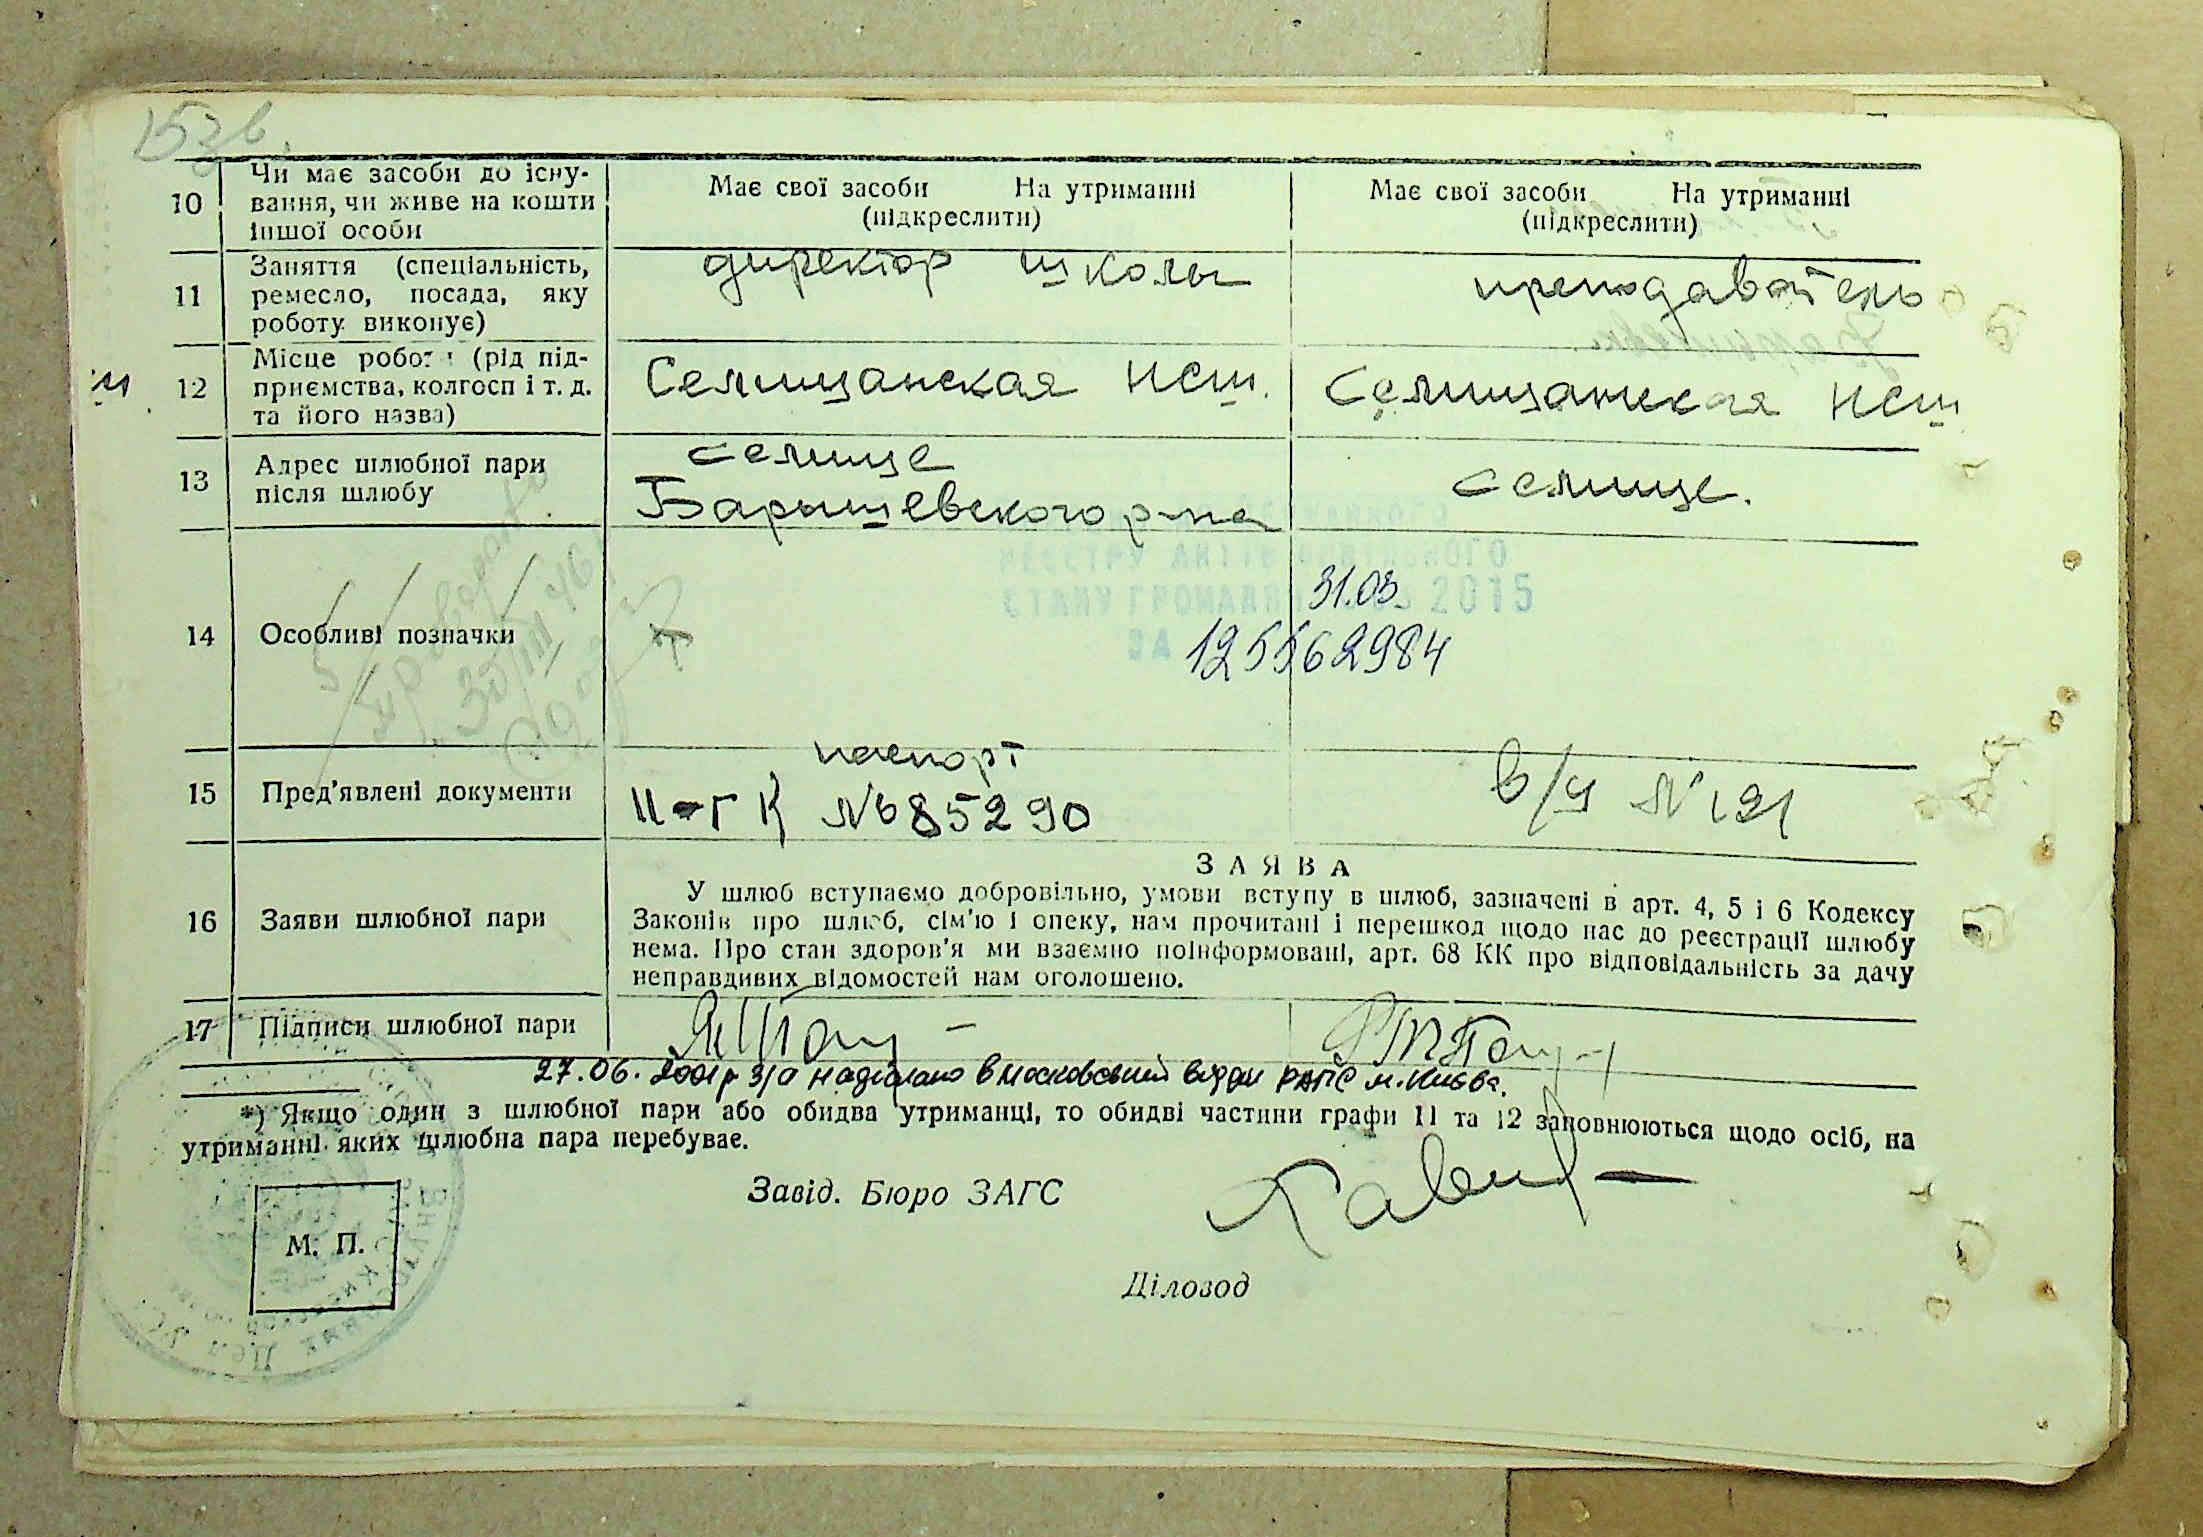 10 Чи має засоби до існу-
вання, чи живе на кошти
іншої особи
Має свої засоби На утриманні
(підкреслити)
Має свої засоби На утриманні
(підкреслити)
11 Заняття (спеціальність,
ремесло, посада, яку
роботу виконує)
директор школы
преподаватель
12 Місце роботи (рід під-
приємства, колгосп і т. д.
та його назва)
Селищанская НСШ.
Селищанская НСШ
13 Адрес шлюбної пари
після шлюбу
Селище
Барышевского р-на
Селище.
14 Особливі позначки
РЕЄСТРУ АКТІВ ЦИВІЛЬНОГО
СТАНУ ГРОМАДЯН 31.03. 2015
ЗА 125562984
15 Пред'явлені документи
паспорт
II-ГК №685290
в/у № 121
16 Заяви шлюбної пари
ЗАЯВА
У шлюб вступаємо добровільно, умови вступу в шлюб, зазначені в арт. 4, 5 і 6 Кодексу
Законів про шлюб, сім'ю і опеку, нам прочитані і перешкод щодо нас до реєстрації шлюбу
нема. Про стан здоров'я ми взаємно поінформовані, арт. 68 КК про відповідальність за дачу
неправдивих відомостей нам оголошено.
17 Підписи шлюбної пари
27.06. 2001р з/а надіслано в Московський відділ РАГС м. Києва.
*) Якщо один з шлюбної пари або обидва утриманці, то обидві частини графи 11 та 12 заповнюються щодо осіб, на
утриманні яких шлюбна пара перебуває.
Завід. Бюро ЗАГС
М. П.
Діловод